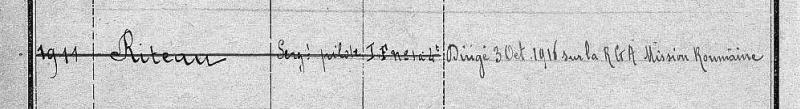 1911 Riteau Serg! pilote Dirigé 3 Oct. 1916 sur la RGA Mission Roumaine